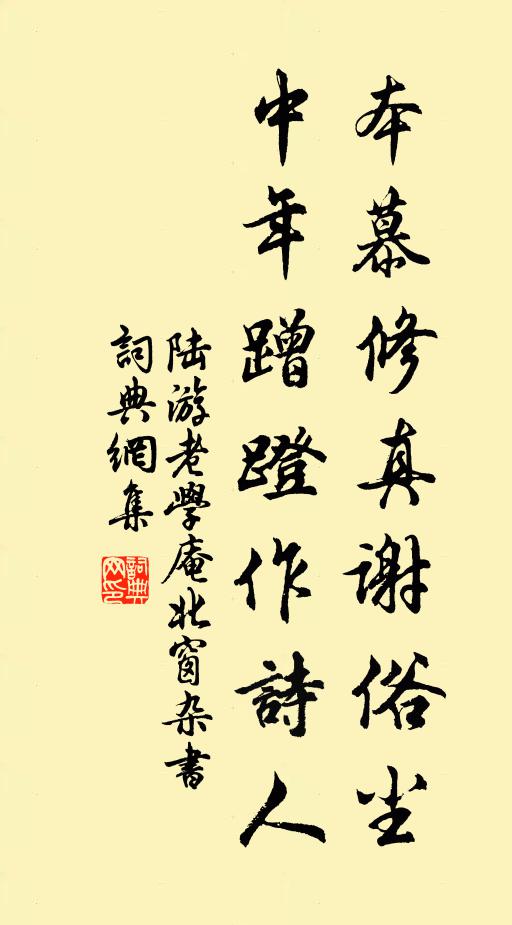 本慕修真谢俗尘
中年蹭蹬作詩人
陆游老學庵北窗杂書
詞典網集
詞典网印